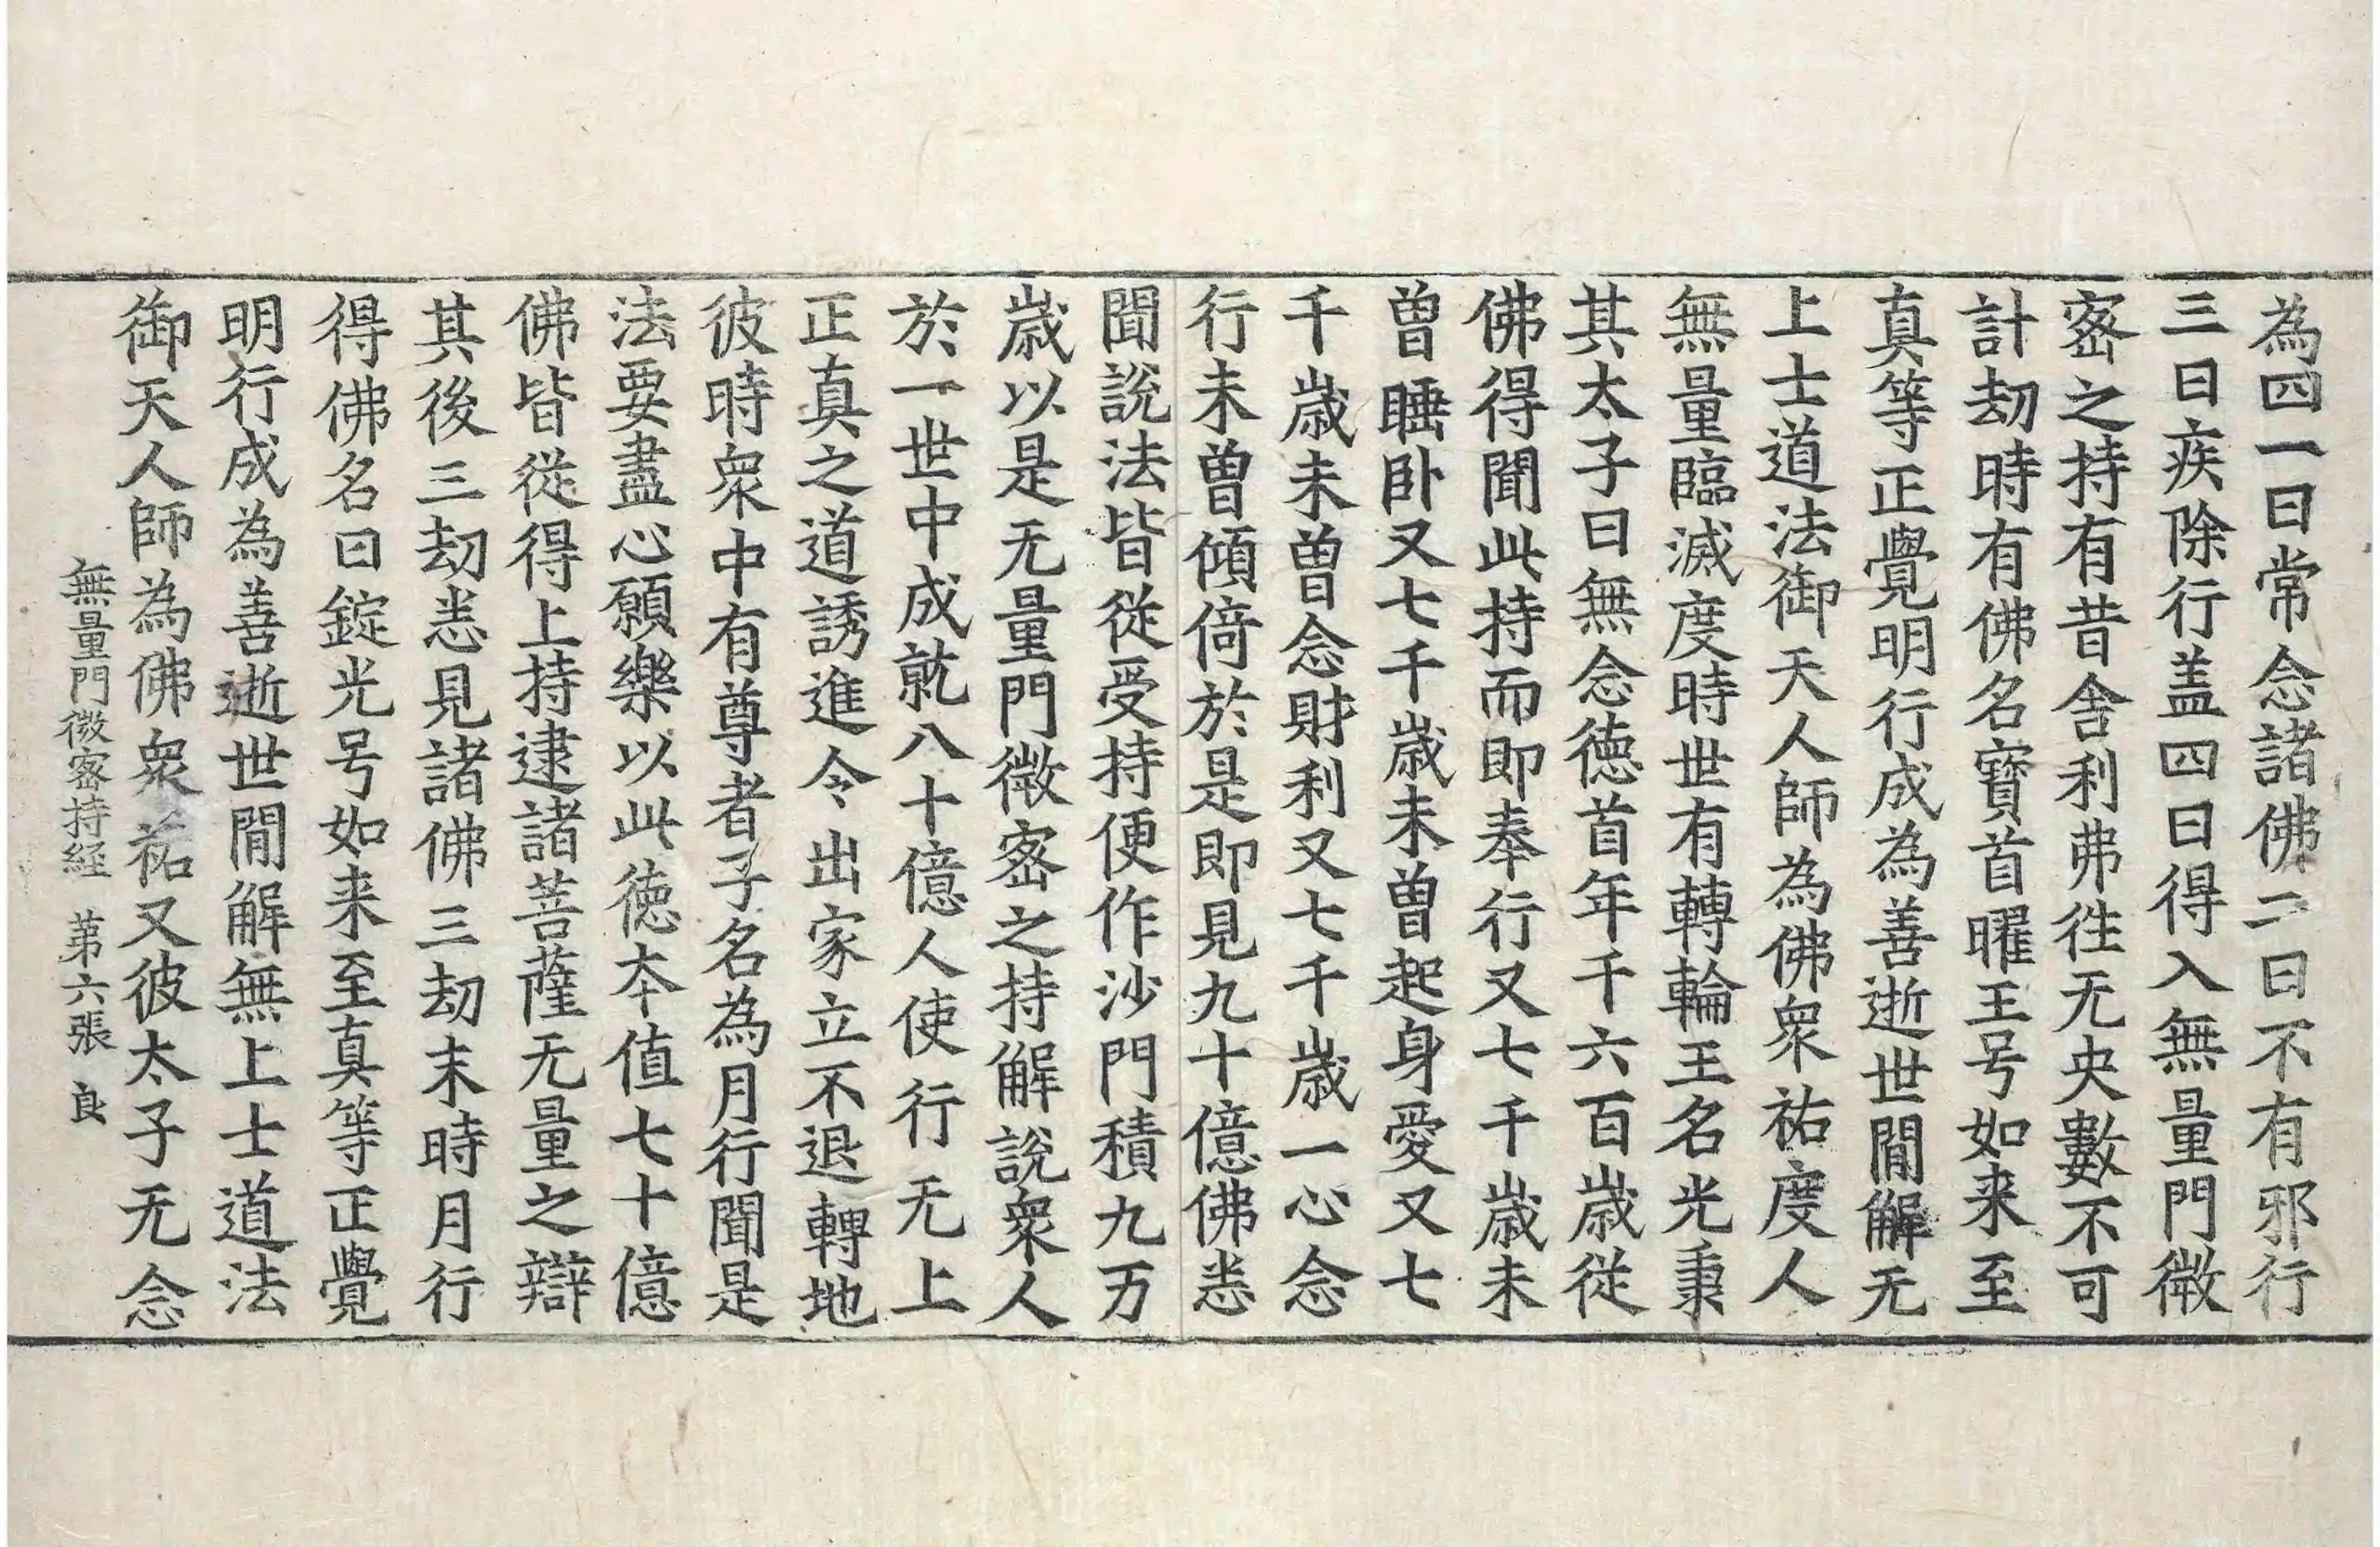 為四一曰常念諸佛二曰不有邪行
三曰疾除行盖四曰得入無量門微
宻之持有昔舍利弗徃无央數不可
計劫時有佛名寶首曜王号如来至
真等正覺明行成為善逝世間解无
上士道法御天人師為佛衆祐度人
無量臨滅度時世有轉輪王名光秉
其太子曰無念徳首年十六百歲從
佛得聞此持而即奉行又七千歲未
曽睡卧又七千歲未曽起身愛又七
千歲未曽念財利又七千歲一心念
行未曽傾倚於是即見九十億佛悉
聞說法皆從受持便作沙門積九万
歲以是无量門微宻之持解說衆人
於一世中成就八十億人使行无上
正真之道誘進令出家立不退轉地
彼時衆中有尊者子名為月行聞是
法要盡心願樂以此徳夲值七十億
佛皆從得上持逮諸菩薩无量之辯
其後三劫悉見諸佛三劫末時月行
得佛名曰錠光号如来至真等正覺
明行成為善逝世間解無上士道法
御天人師為佛衆祐又彼太子无念
無量門微宻持経 苐六張 良